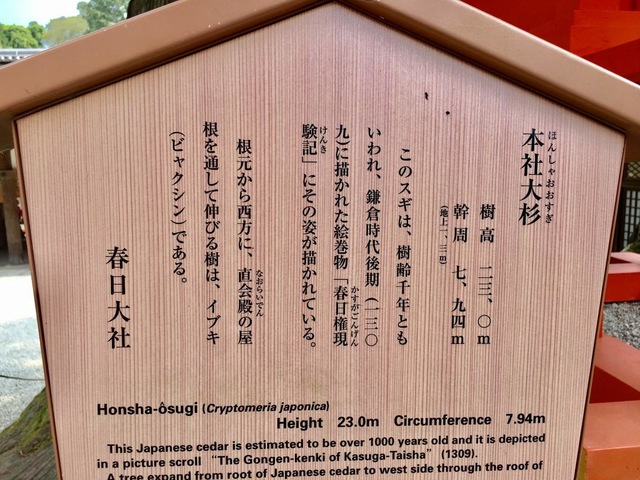 本社大杉
ほんしゃおおすぎ
樹高 二三、〇m
幹周 七、九四m
(地上一、三m)
このスギは、樹齢千年とも
いわれ、鎌倉時代後期(一三〇
九)に描かれた絵巻物「春日権現
かすがごんげん
験記」にその姿が描かれている。
けんき
根元から西方に、直会殿の屋
なおらいでん
根を通して伸びる樹は、イブキ
(ビャクシン)である。
春日大社
Honsha-ôsugi (Cryptomeria japonica)
Height 23.0m Circumference 7.94m
This Japanese cedar is estimated to be over 1000 years old and it is depicted
in a picture scroll “The Gongen-kenki of Kasuga-Taisha” (1309).
A tree expand from root of Japanese cedar to west side through the roof of